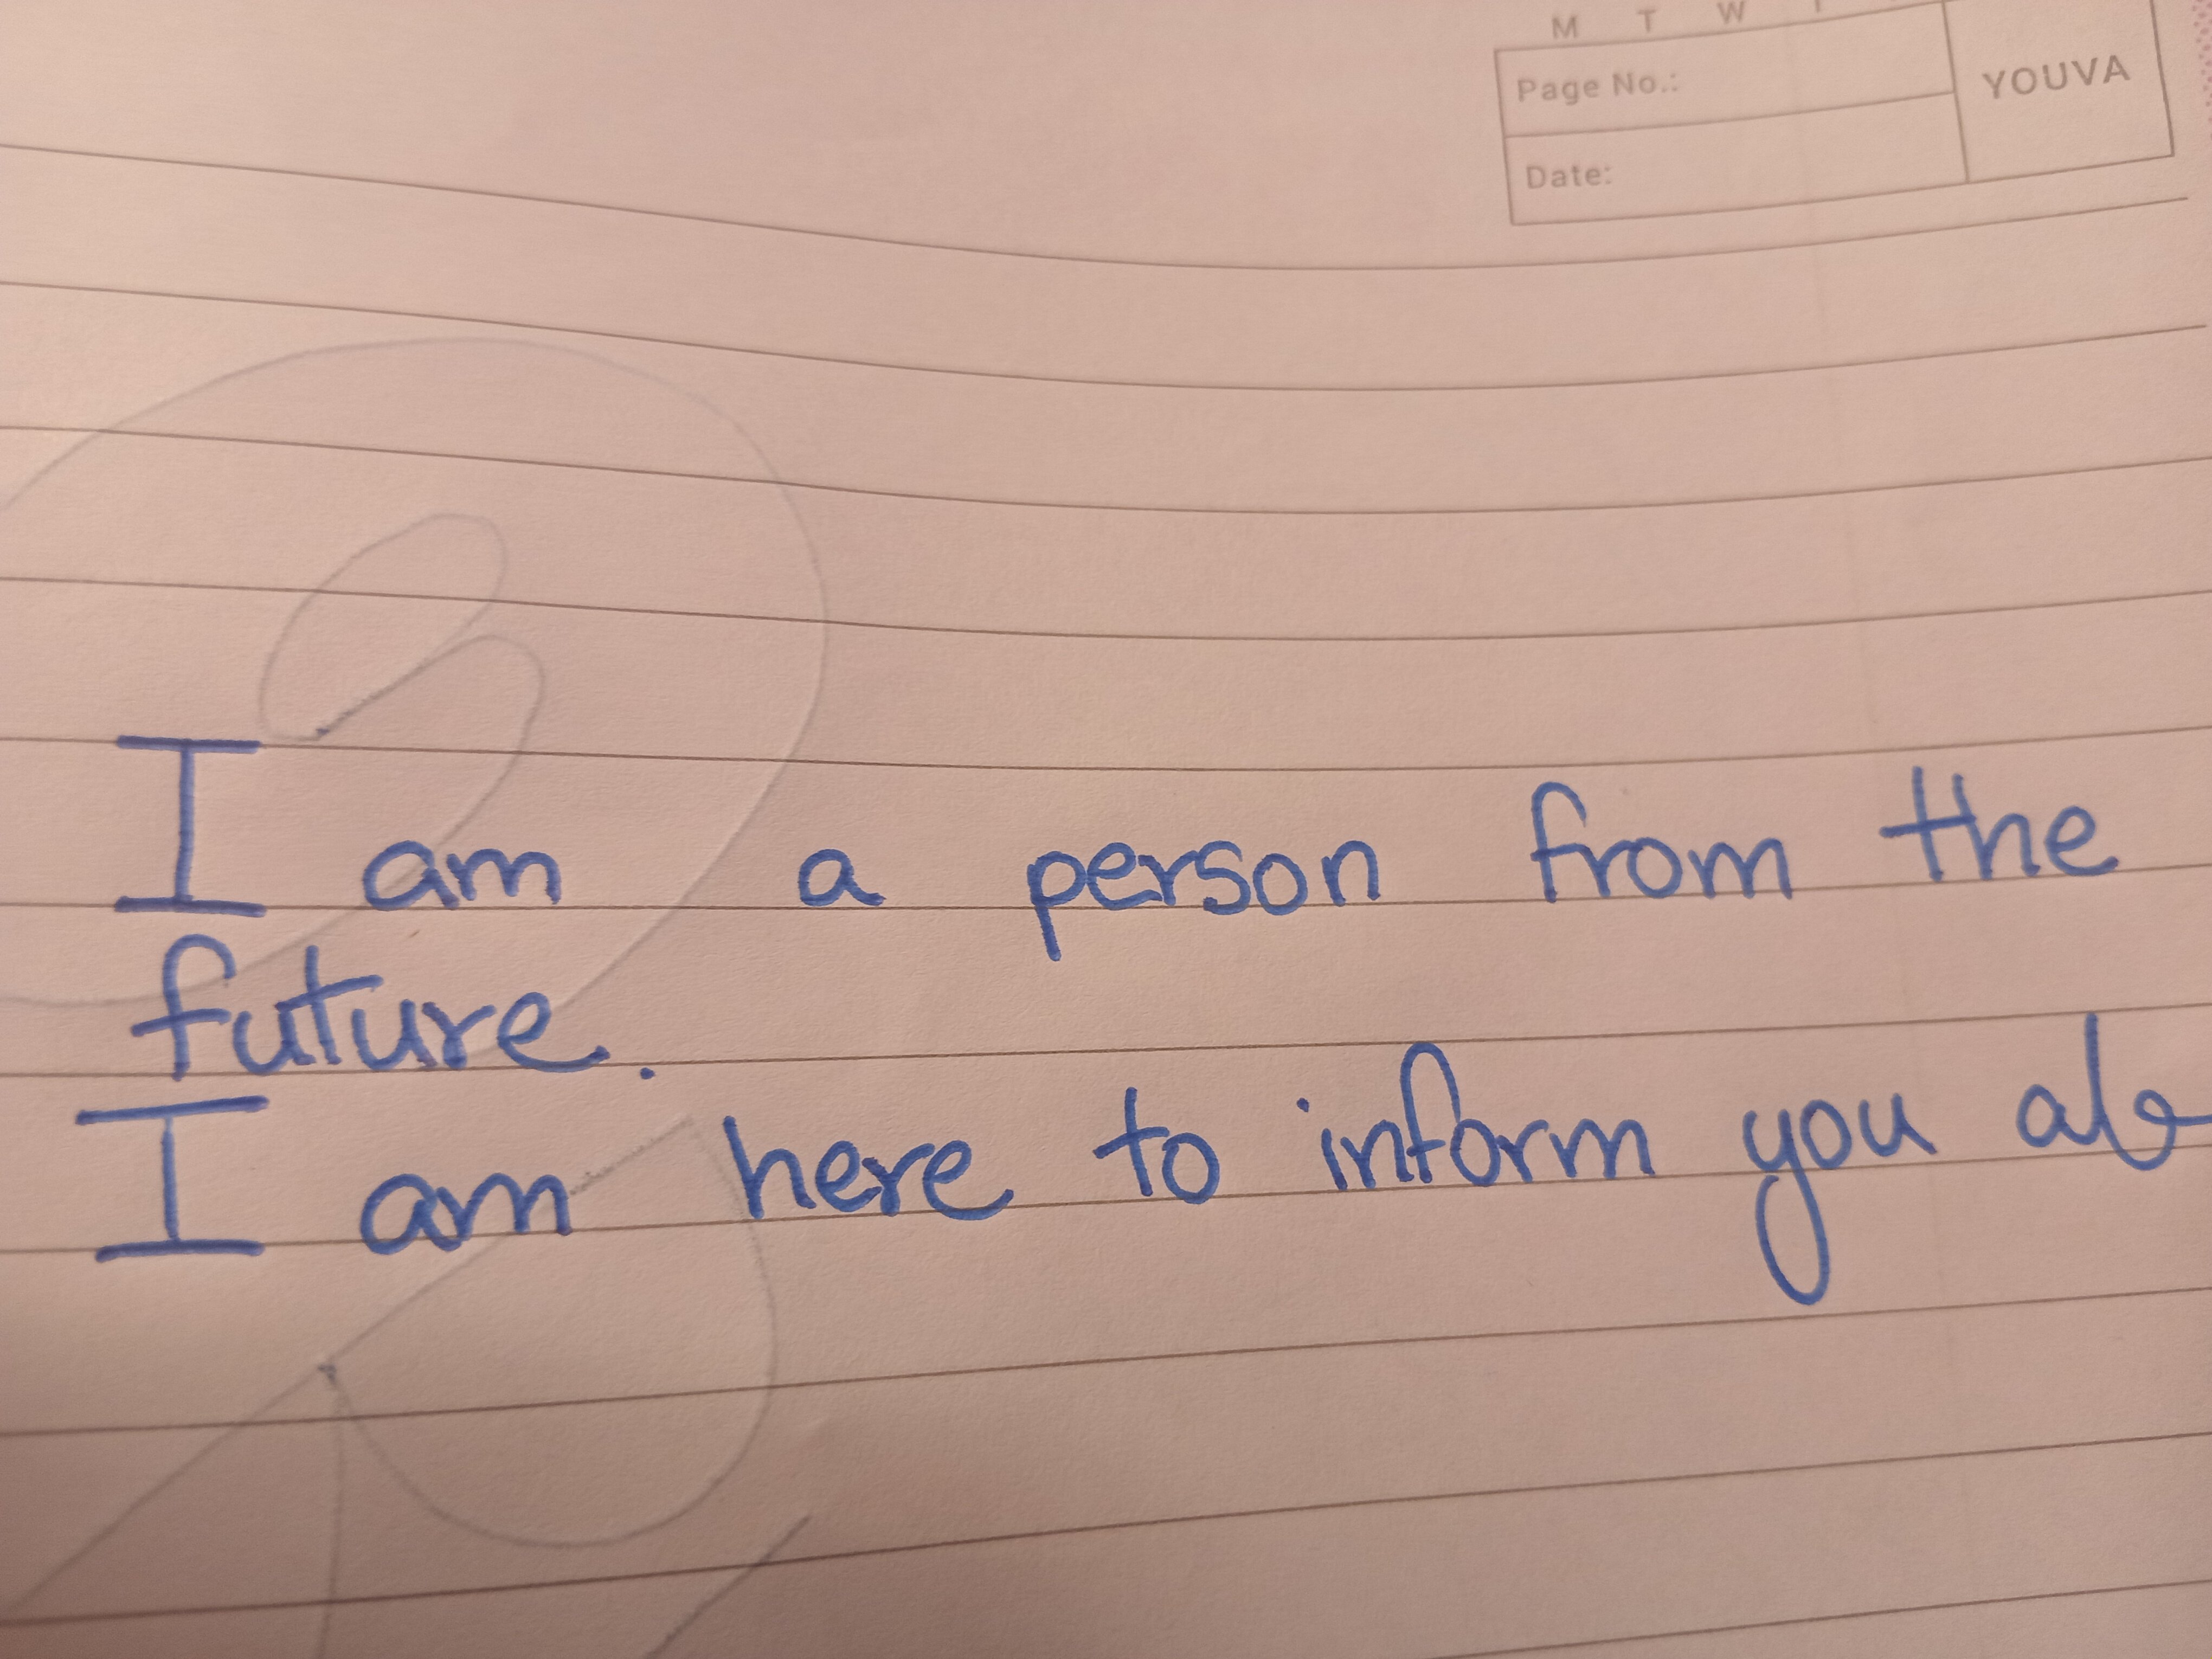 M T W
Page No.:
YOUVA
Date:
I am a person from the
future.
I am here to inform you